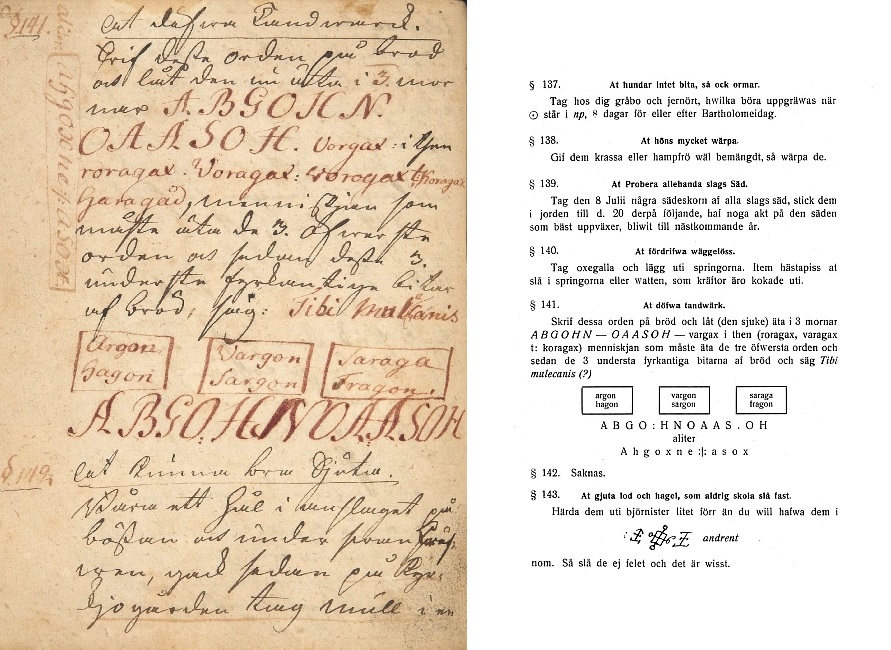 § 141.
att döfwa Tandwerck.
Skrif desse orden på bröd
och låt den siu äta i 3 mor
nar A B G O H N.
O A A S O H. Vorgax: i then
roragax. Voragax: voroyax t: Koragax
Garagad, menniskjan som
måste äta de 3. öfwerste
orden och sedan desse 3.
understa fyrkantige bitar
af bröd, säg: Tibi
Argon
hagon
Vargon
Sargon
Saraga
Fragon.
A.B.G.O.H.N.O.A.A.S.O.H
alitér Ahgoxne:||:asox
§ 142.
att kunna
Skära ett Hål i anslaget på
bössan och under
gack sedan på Kyr-
kjogården tag mull i en
§ 137. At hundar intet bita, så ock ormar.
Tag hos dig gråbo och jernört, hwilka böra uppgräwas när
☉ står i np, 8 dagar för eller efter Bartholomeidag.
§ 138. At höns mycket wärpa.
Gif dem krassa eller hampfrö wäl bemängdt, så wärpa de.
§ 139. At Probera allehanda slags Säd.
Tag den 8 Julii några sädeskorn af alla slags säd, stick dem
i jorden till d. 20 derpå följande, haf noga akt på den säden
som bäst uppväxer, bliwit till nästkommande år.
§ 140. At fördrifwa wäggelöss.
Tag oxegalla och lägg uti springorna. Item hästapiss at
slå i springorna eller watten, som kräftor äro kokade uti.
§ 141. At döfwa tandwärk.
Skrif dessa orden på bröd och låt (den sjuke) äta i 3 mornar
A B G O H N — O A A S O H — vargax i then (roragax, varagax
t: koragax) menniskjan som måste äta de tre öfwersta orden och
sedan de 3 understa fyrkantiga bitarna af bröd och säg Tibi
mulecanis (?)
argon
hagon
vargon
sargon
saraga
fragon
A B G O : H N O A A S . O H
aliter
A h g o x n e :|: a s o x
§ 142. Saknas.
§ 143. At gjuta lod och hagel, som aldrig skola slå fast.
Härda dem uti björnister litet förr än du will hafwa dem i
andrent
nom. Så slå de ej felet och det är wisst.